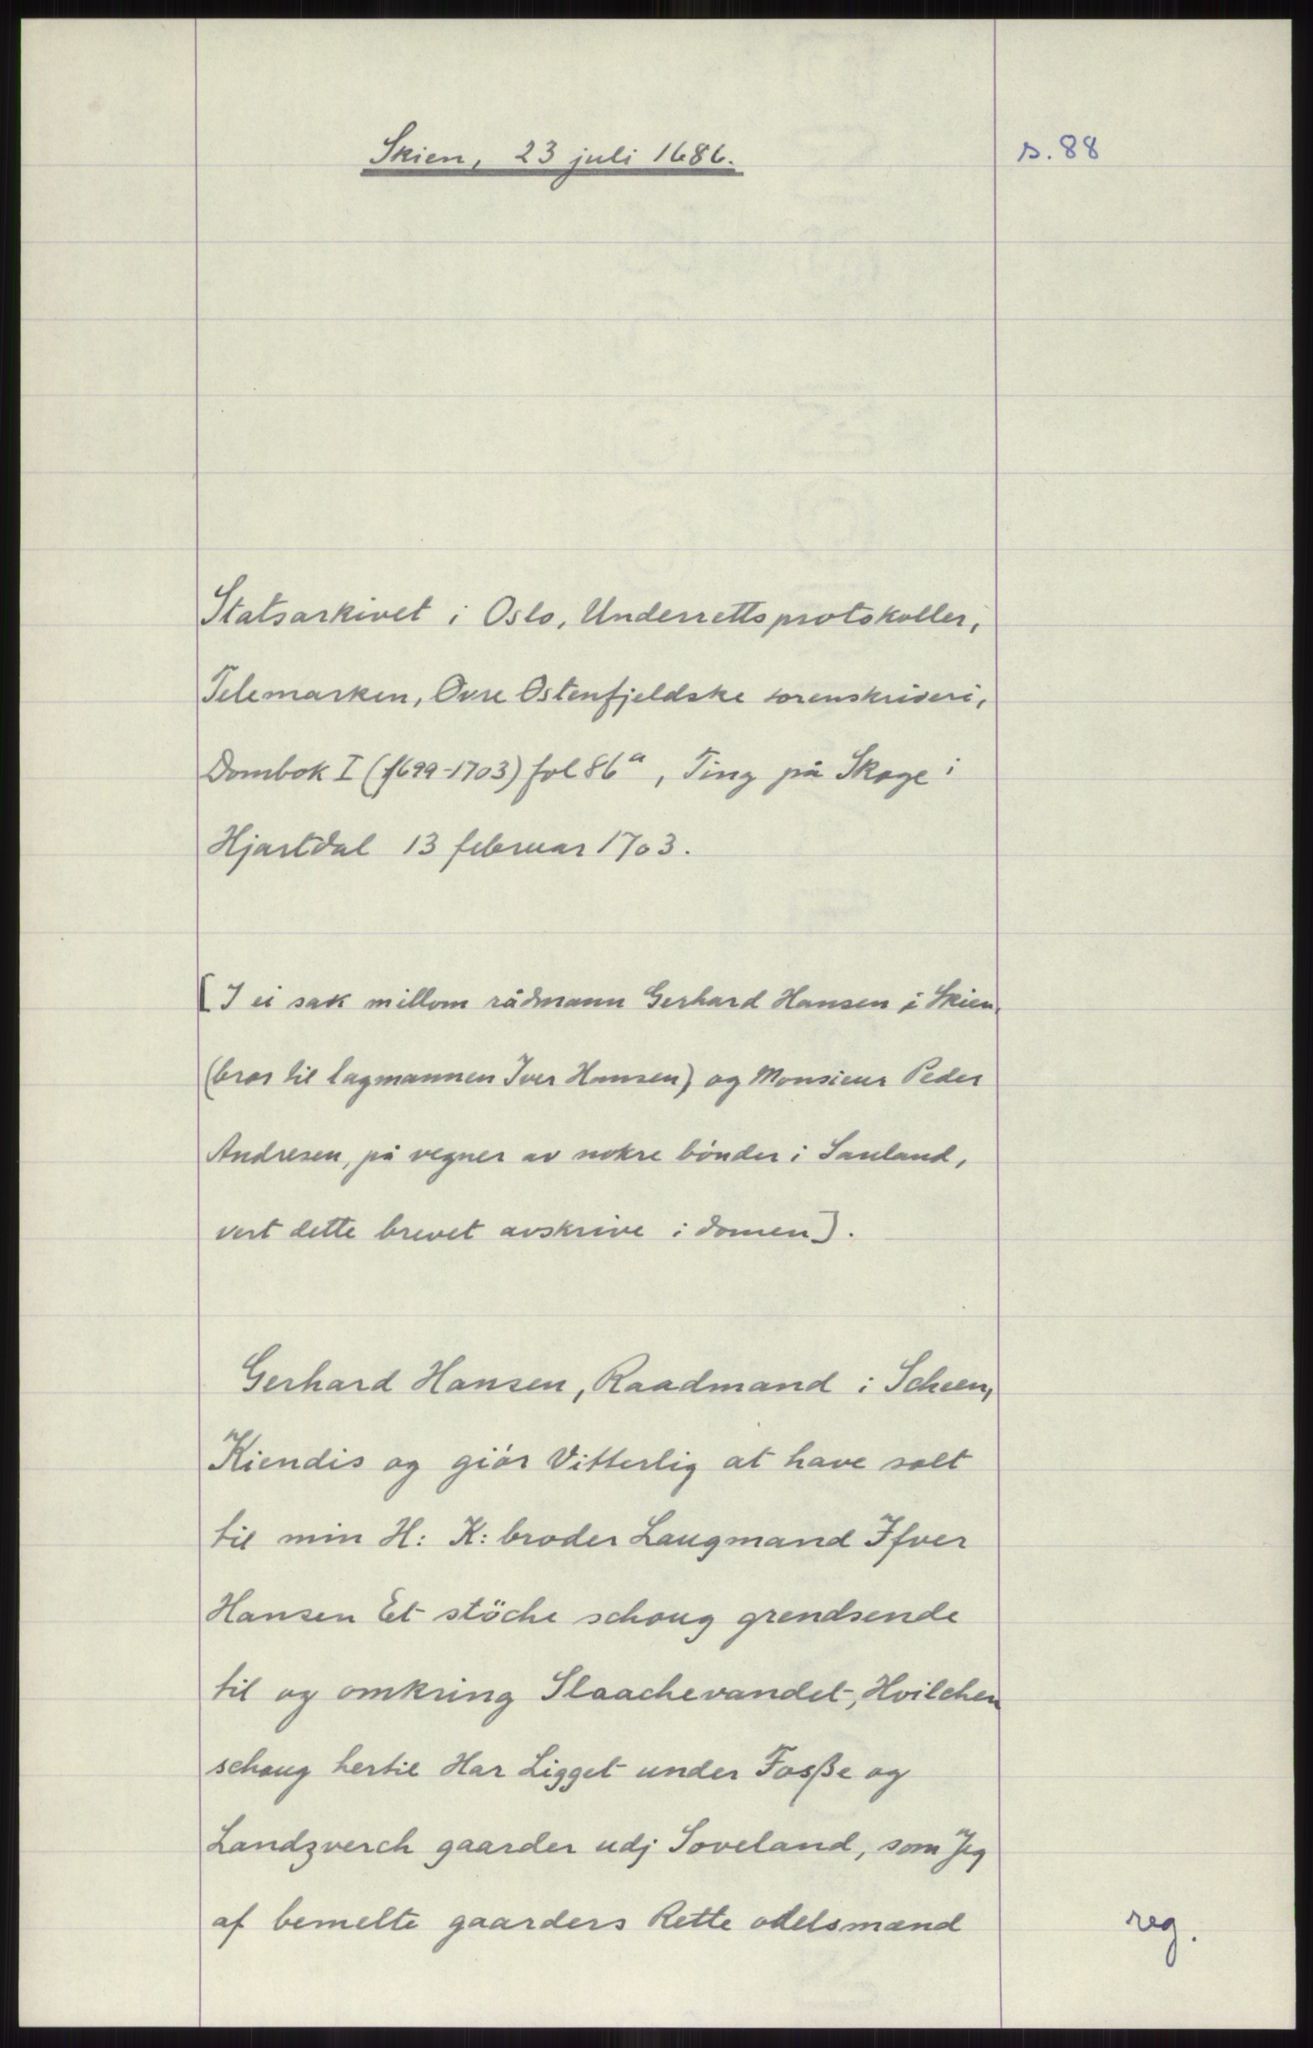 Skien, 23 juli 1686.
s. 88
Statsarkivet i Oslo, Underrettsprotokoller,
Telemarken, Øvre Østenfjeldske sorenskriveri,
Dombok I (1699-1703) fol 86a, Ting på Skoge i
Hjartdal 13 februar 1703.
[I ei sak millom rådmann Gerhard Hansen i Skien,
(bror til lagmannen Iver Hansen) og Monsieur Peder
Andresen, på vegner av nokre bönder i Sauland,
vert dette brevet avskrive i domen].
Gerhard Hansen, Raadmand i Scheen,
Kiendis og giör Vitterlig at have solt
til min H: K: broder Laugmand Ifver
Hansen Et stöche schoug grendsende
til og omkring Slaachevandet, Hvilchen
schoug hertil Har Ligget under Fosße og
Landzverch gaarder udj Soveland, som Jeg
af bemelte gaarders Rette odelsmænd
reg.